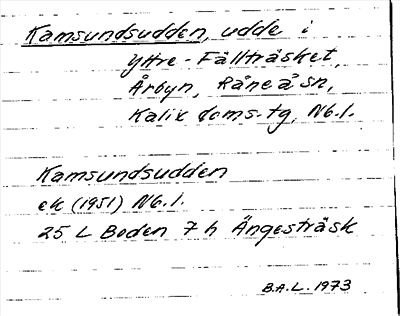 Kamsundsudden, udde i
Yttre-Fällträsket,
Årbyn, Råneå sn,
Kalix doms-tg, Nb.l.
Kamsundsudden
ek (1951) Nb.l.
25 L Boden 7 h Ängesträsk
B.A.L. 1973